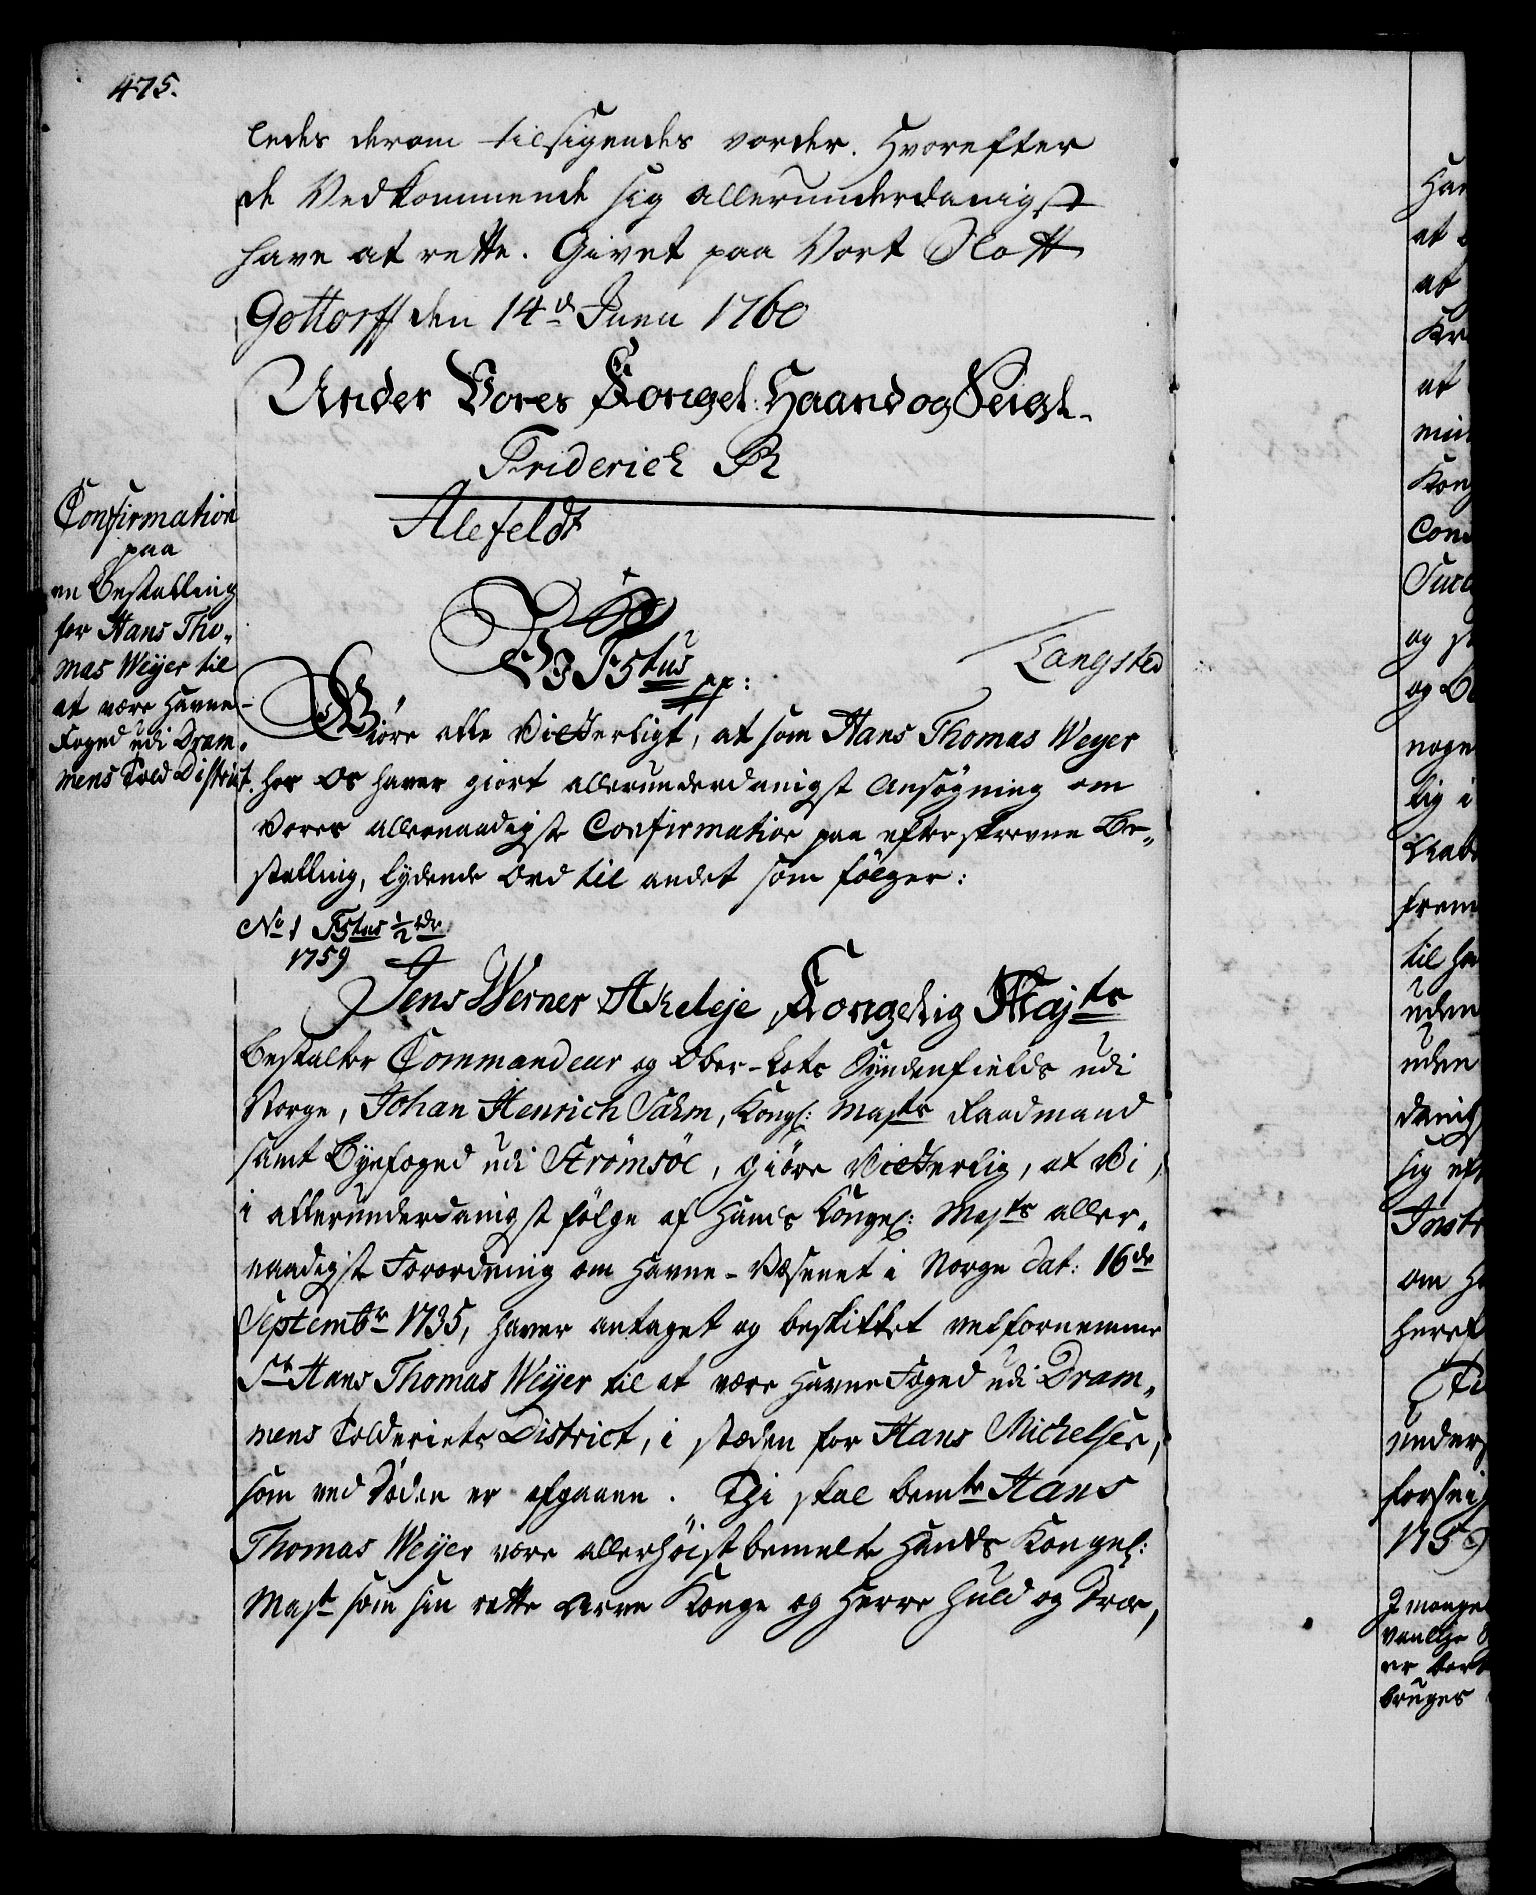 475.
ledes derom tilsigendes vorder. Hvorefter
de Vedkommende sig allerunderdanigst
have at rette. Givet paa Vort Slott
Gottorff den 14de Junii 1760
Under Vores Kongel: Haand og Seigl.
Friderich R
Alefeldt
Confirmation
paa
en Bestalling
for Hans Tho-
mas Weyer til
at være Havne-
Foged udi Dram-
mens Told District.
Wi F5tus pp:
Langsted
Giöre alle Vitterligt, at som Hans Thomas Weyer
hos Os haver giort allerunderdanigst Ansögning om
Vores allernaadigste Confirmation paa efterskrevne Be-
stalling, lydende Ord til andet som fölger:
No 1 F5tus ½ rdr
1759
Jens Werner Akeleje, Kongelig Majts
Bestalter Commandeur og Ober-Lots Syndenfields udi
Norge, Johan Henrich Sahm, Kongl: Majts Raadmand
samt Byefoged udi Strömsöe, giöre Vitterlig, at Vi,
i allerunderdanigst fölge af Hans Kongel: Majts aller-
naadigste Forordning om Havne-Væsenet i Norge dat: 16de
Septembr 1735, haver antaget og beskikket velfornemme
Sr Hans Thomas Weyer til at være Havne Foged udi Dram-
mens Tolderiets District, i stæden for Hans Michelsen,
som ved Döden er afgaaen. Thi skal bemte Hans
Thomas Weyer være allerhöistbemelte Hands Kongel:
Majt som sin rette Arve Konge og Herre Huld og Troe,
at
at
Kr
at
Kong
og
til
uden
uden
Instr
om
under
1759
bruges